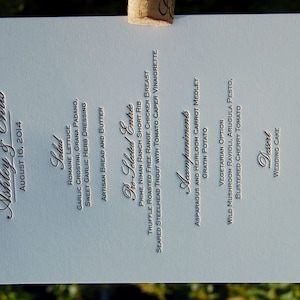 Ashley &
August 16, 2014
Salad
Romaine Lettuce
Garlic Crostini, Grana Padano,
Sweet Garlic Herb Dressing
Artisan Bread and Butter
Pre-Selected Entrée
Prime Niman Ranch Short Rib
Truffle Roasted Free Range Chicken Breast
Seared Steelhead Trout with Tomato Caper Vinaigrette
Accompaniments
Asparagus and Heirloom Carrot Medley
Gratin Potato
Vegetarian Option
Wild Mushroom Ravioli, Arugula Pesto,
Blistered Cherry Tomato
Dessert
Wedding Cake